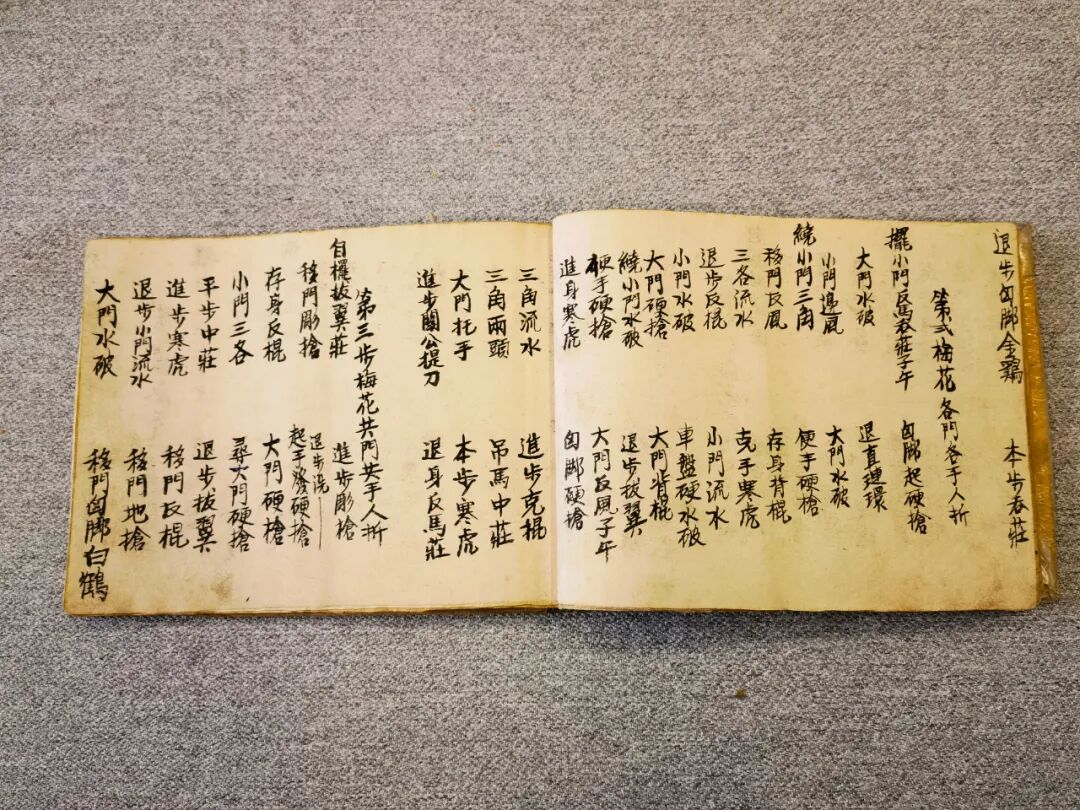 退步勾脚金鷄 本步春莊
第弍梅花各門各手人折
擺小門反馬春莊子午 勾脚起硬搶
大門水破 退直連環
小門邊風 大門水破
繞小門三角 便手硬搶
移門反風 存身背棍
三各流水 克手寒虎
退步反棍 小門流水
小門水破 車盤硬水破
大門硬搶 大門背棍
繞小門水破 退步拔翼
硬手硬搶 大門反風子午
進身寒虎 勾脚硬搶
三角流水 進步克棍
三角兩頭 吊馬中莊
大門托手 本步寒虎
進步關公提刀 退身反馬莊
第三步梅花共門共手人折
自擺拔翼莊 進步彫搶
移門彫搶 退步洗
起手發硬搶
存身反棍 大門硬搶
小門三各 尋大門硬搶
平步中莊 退步拔翼
進步寒虎 移門反棍
退步小門流水 移門地搶
大門水破 移門勾脚白鶴